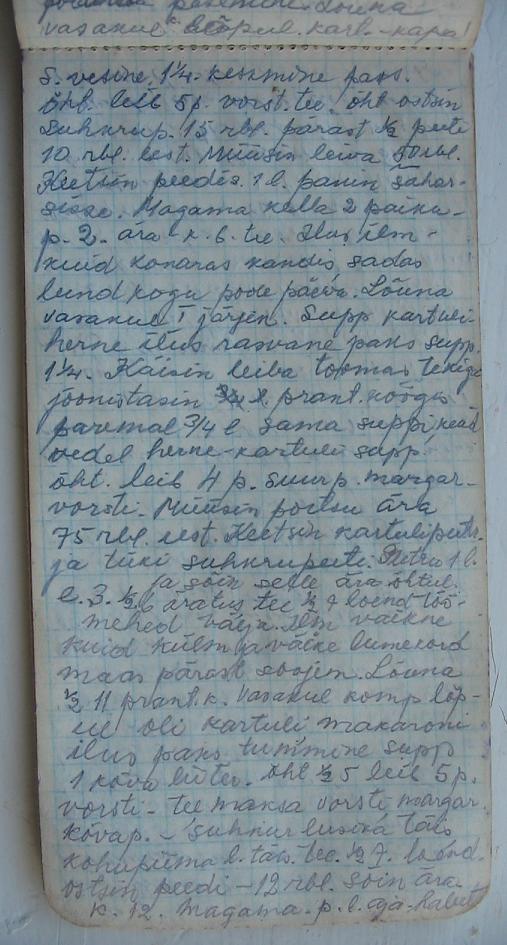 vasakul lõpul. karb. - kapa
s. vesine. 1¼. keskmine paks.
õht. leib 5p. vorst. tee. õht ostsin
suhkrup. 15 rbl. pärast ½ peeti
10 rbl. eest. Müüsin leiva 50 rbl.
Keetsin peedis. 1 l. panin sahar-
sisse. Magama kella 2 paiku -
p. 2. ära k. 6. tee. Ilus ilm -
kuid konaras kandis sadas
lund kogu poole päeva. Lõuna
vasakul I järjen. Supp kartuli-
herne ilus rasvane paks supp.
1¼. Käisin leiba toomas tekiga
joonistasin prant. köögis
paremal 3/4 l sama suppi
vedel herne-kartuli supp,
õht. leib 4 p. suurp. margar-
vorsti. Müüsin portsu ära
75 rbl. eest. Keetsin kartulipeeti-
ja tüki suhkrupeeti. 1 l.
ja sõin selle ära õhtul.
e. 3. ½ 6 äratus tee ½ 7 loend töö-
mehed välja. Ilm vaikne
kuid külm ja väike lumekord
maas pärast soojem. Lõuna
½ 11 prant. k. vasakul komp lõp-
ul oli kartuli makaroni
ilus paks tummine supp
1 kõva liiter. õht ½ 5 leib 5p.
vorsti - tee maksa vorsti margar.
kovap. - suhkur lusika täis
kohupiima l. täis. tee. ½ 7. loend.
ostsin peedi - 12 rbl. sõin ära.
k. 12. magama. p. l. aja-